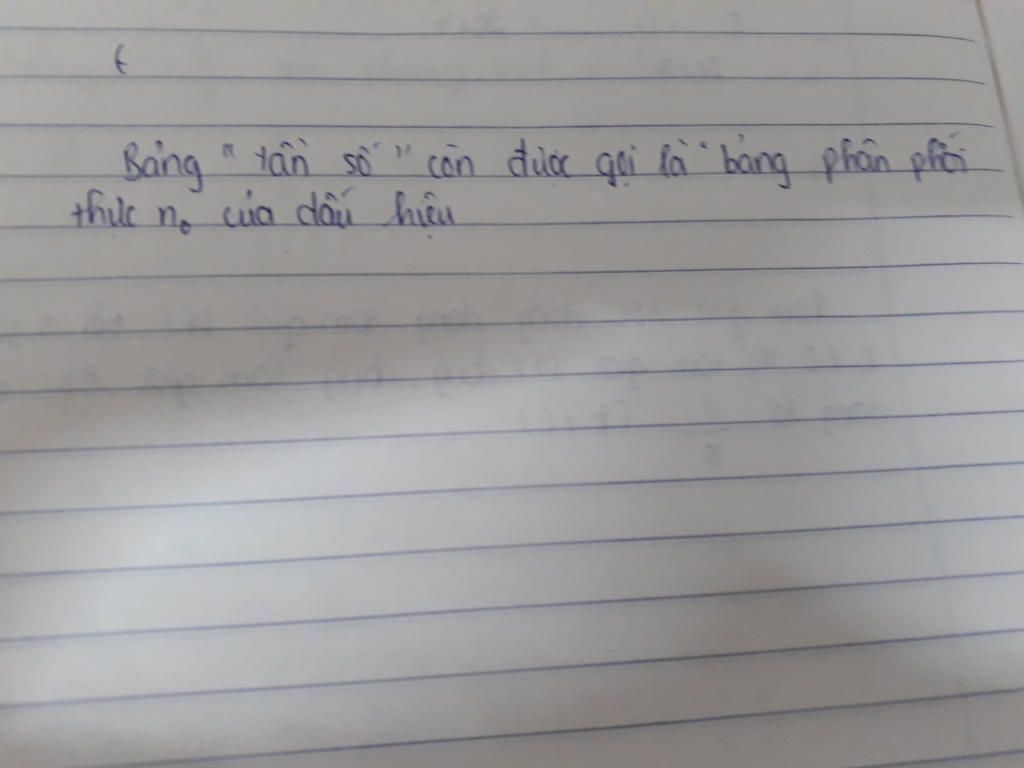 Bảng " tần số " còn được gọi là " bảng phân phối
thực n₀ của dấu hiệu